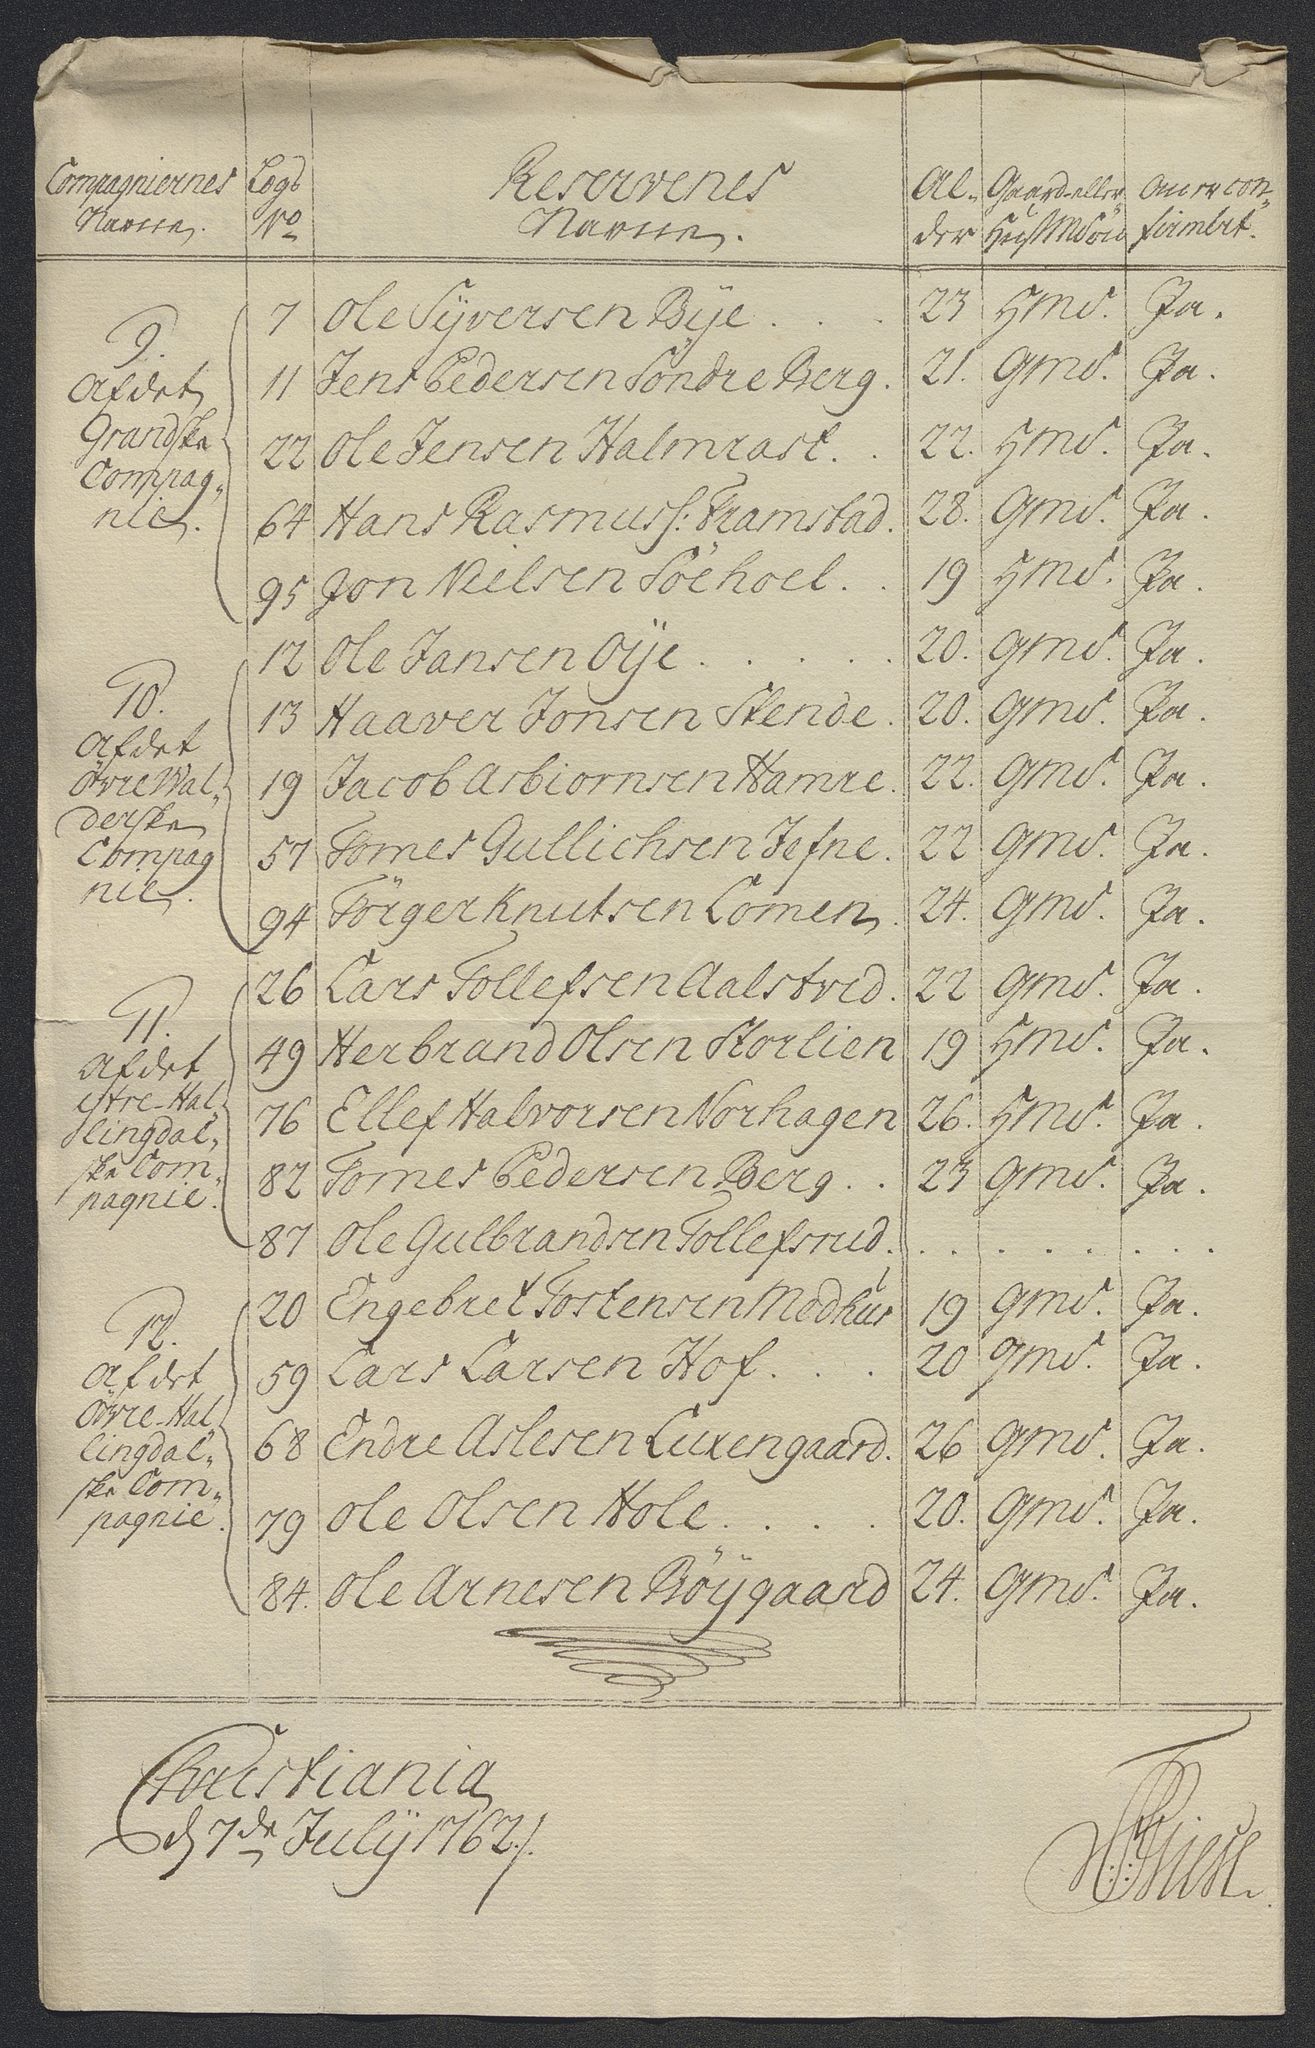 Compagniernes Navne. | Legd No | Reservenes Navne. | Al- der | Gaard-eller Huusmdsön | om er con- firmert.
9. Af det Grandske Compag- nie.
7 Ole Syversen Bye . . . 23 Hmd. Ja.
11 Jens Pedersen Söndre Berg. 21. Gmd. Ja.
22 Ole Jensen Halmrast. . 22. Hmd. Ja.
64 Hans Rasmuss: Framstad. 28. Gmd. Ja.
95 Jon Nielsen Söehoel. . 19 Hmd. Ja.
10. Af det Övre Wal- derske Compag nie.
12 Ole Jansen Oÿe . . . . . 20. Gmd. Ja.
13 Haaver Jonsen Skende. 20. Gmd. Ja.
19 Jacob Asbiornsen Hamre. 22. Gmd. Ja.
57 Tomes Gullichsen Jefne. 22 Gmd. Ja.
94 Törger Knutsen Lomen. 24. Gmd. Ja.
11. Af det ytre-Hal- lingdal- ske Com- pagnie.
26 Lars Tollefsen Aalstved. 22 Gmd. Ja.
49 Herbrand Olsen Storlien 19 Hmd. Ja.
76 Ellef Halvorsen Norhagen 26. Hmd. Ja.
82 Tomes Pedersen Berg . . 23 Gmd. Ja.
87 Ole Gulbrandsen Tollefsrud. . . . . . . .
12. Af det Övre-Hal lingdal- ske Com- pagnie.
20 Engebret Tostensen Medhus 19 Gmd. Ja.
59 Lars Larsen Hof . . . 20 Gmd. Ja.
68 Endre Aslesen Luxengaard. 26 Gmd. Ja.
79 Ole Olsen Hole . . . . 20. Gmd. Ja.
84. Ole Arnesen Böÿgaard 24. Gmd. Ja.
Christiania
d 7de Julÿ 1762.